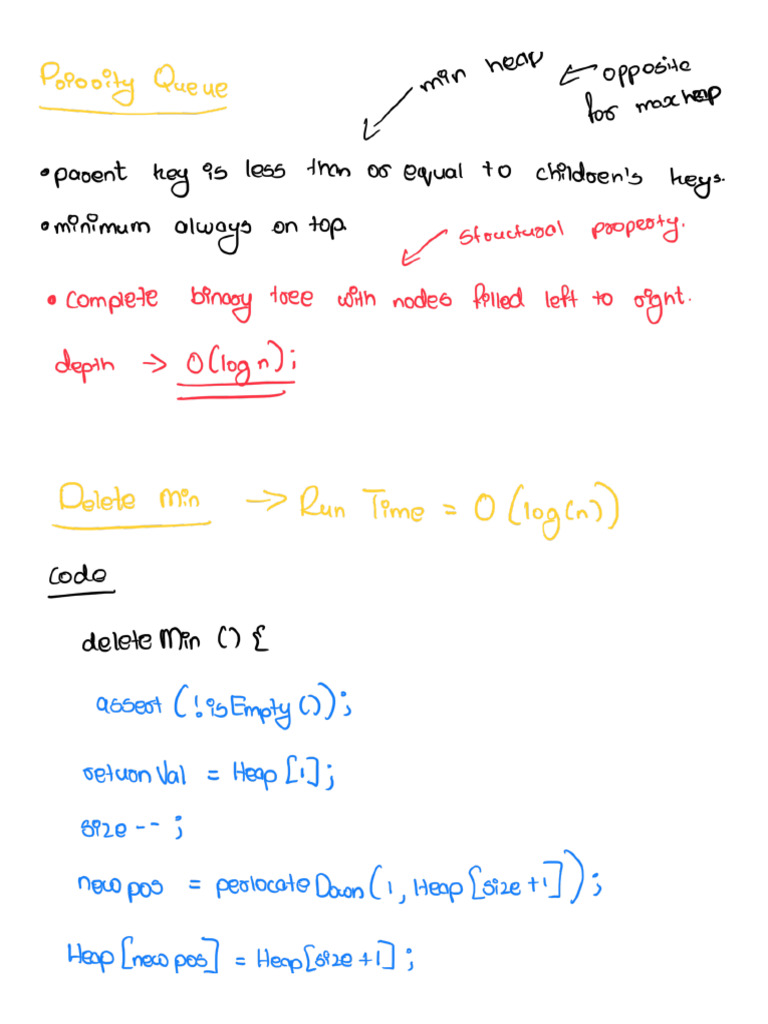 Priority Queue
min heap
opposite
for max heap
• parent key is less than or equal to children's keys.
• minimum always on top.
structural property.
• complete binary tree with nodes filled left to right.
depth → O(log n);
Delete Min → Run Time = O(log(n))
Code
deleteMin () {
assert (!isEmpty());
returnVal = Heap[1];
size--;
newpos = perlocateDown(1, Heap[size+1]);
Heap[newpos] = Heap[size+1];